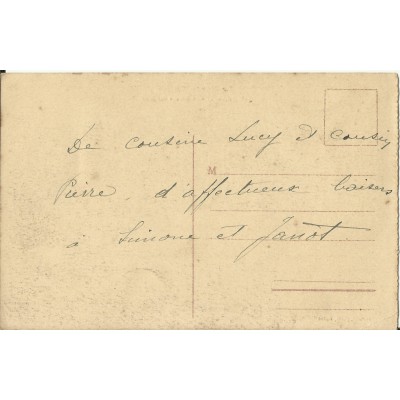 De cousine Lucy et cousin
M
Pierre, d'affectueux baisers
à Simone et Janot.